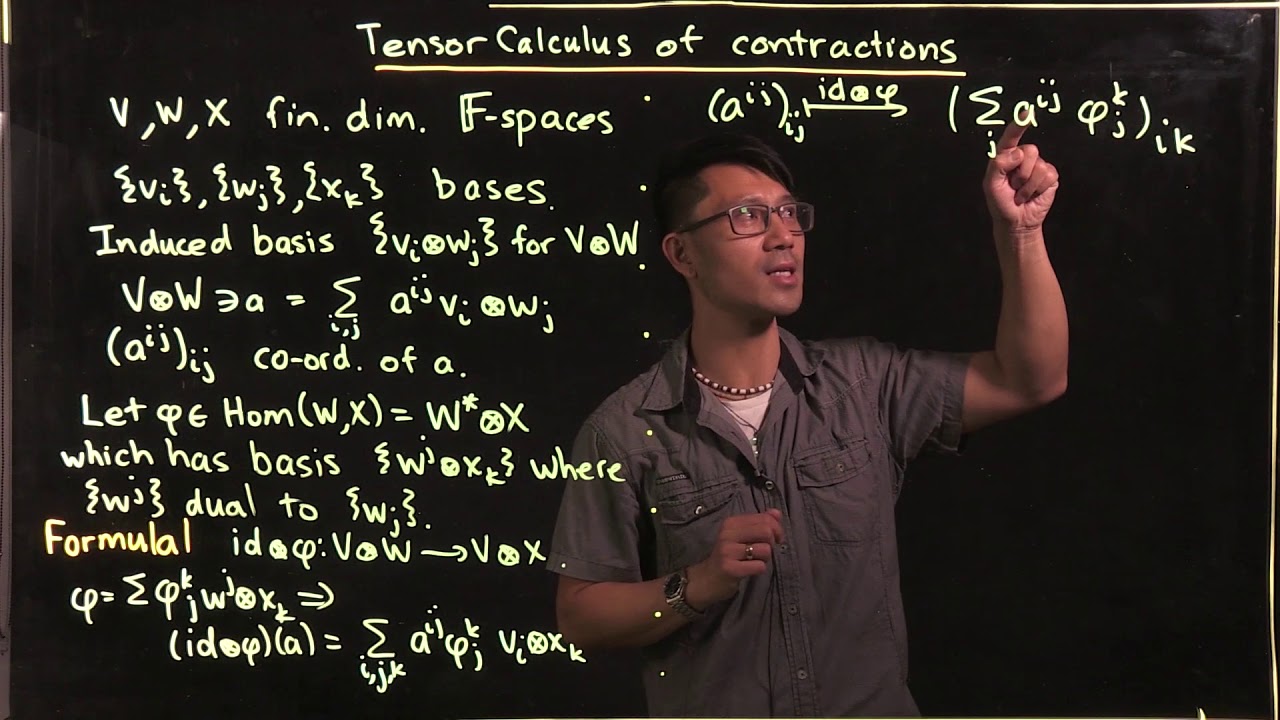 Tensor Calculus of contractions
V, W, X fin. dim. 𝔽-spaces
{vᵢ}, {wⱼ}, {xₖ} bases.
Induced basis {vᵢ⊗wⱼ} for V⊗W
V⊗W ∋ a = Σ_{i,j} a^{ij} vᵢ⊗wⱼ
(a^{ij})_{ij} co-ord. of a.
Let φ ∈ Hom(W,X) = W*⊗X
which has basis {w^j⊗xₖ} where
{w^j} dual to {wⱼ}.
Formula1 id⊗φ: V⊗W → V⊗X
φ = Σ φ^k_j w^j⊗xₖ ⇒
(id⊗φ)(a) = Σ_{i,j,k} a^{ij} φ^k_j vᵢ⊗xₖ
(a^{ij})_{ij} ↦^{id⊗φ} (Σ_j a^{ij} φ^k_j)_{ik}